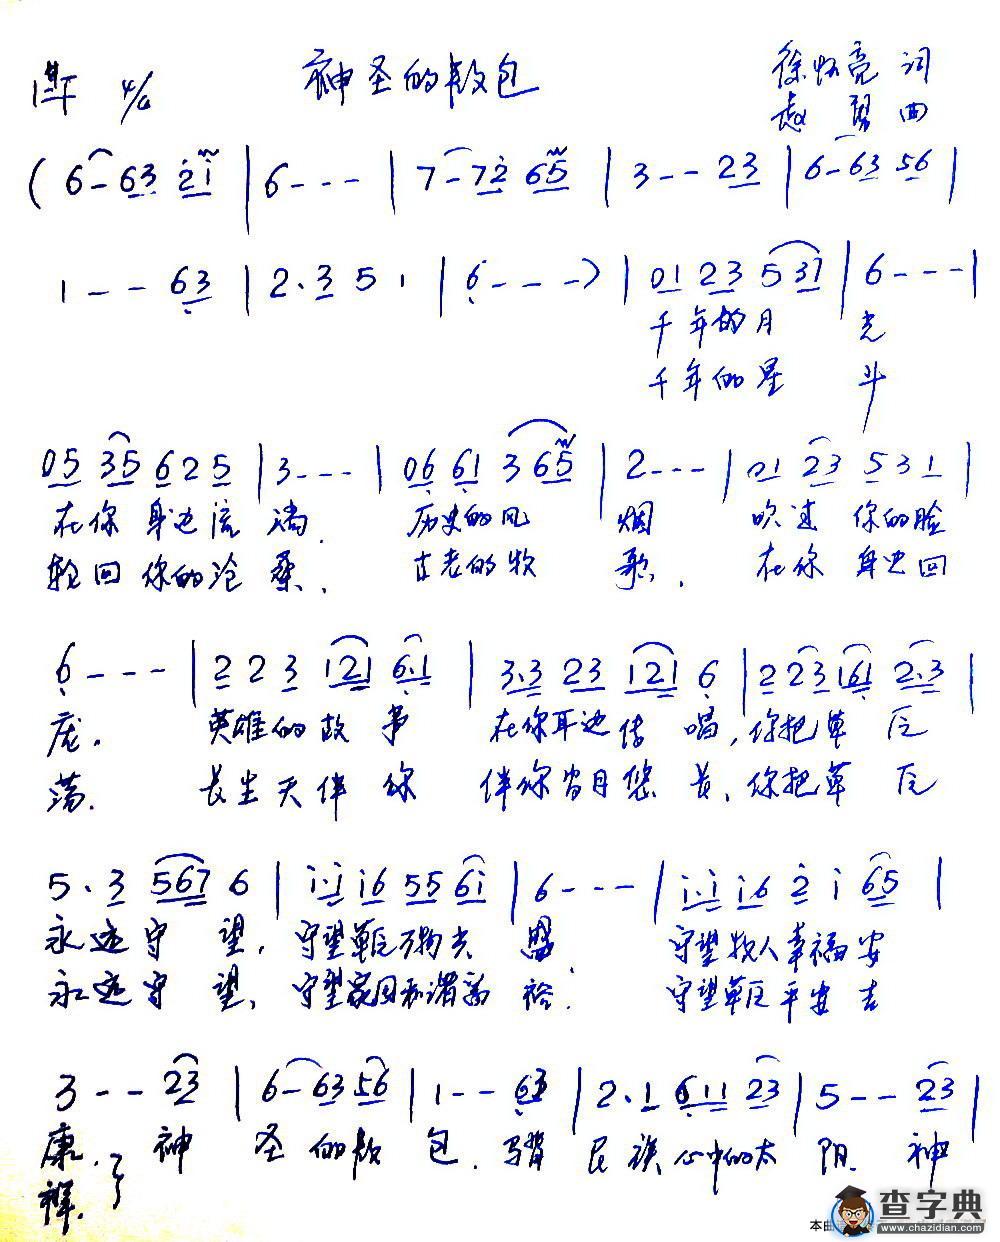 1=F 4/4 神圣的敖包 徐怀亮 词
曲
( 6 - 63 21 | 6 - - - | 7 - 72 65 | 3 - - 23 | 6 - 63 56 |
1 - - 63 | 2. 3 5 1 | 6 - - - ) | 01 23 5 37 | 6 - - - |
千年的月 光
千年的星 斗
05 35 6 2 5 | 3 - - - | 06 61 3 65 | 2 - - - | 01 23 5 3 1 |
在你 身边流 淌. 历史的风 烟 吹过 你的脸
轮回 你的沧 桑. 古老的牧 歌. 在你 身边回
6 - - - | 2 2 3 121 6.1 | 3.3 23 121 6 | 2 23 161 2.3 |
庞. 英雄的故 事 在你耳边传 唱,你把草原
荡. 长生天伴 你 伴你 月 长,你把草原
5. 3 567 6 | i.i i6 55 6i | 6 - - - | i.i i6 2 i 65 |
永远守 望,守望草原万物兴 盛. 守望牧人幸福安
永远守 望,守望家园和谐富 裕. 守望草原平安吉
3 - - 23 | 6 - 63 56 | 1 - - 63 | 2. 1 611 23 | 5 - - 23 |
康. 神 圣 的敖 包. 民 族 心中的太 阳. 神
祥.
查字典
www.chazidian.com
本曲